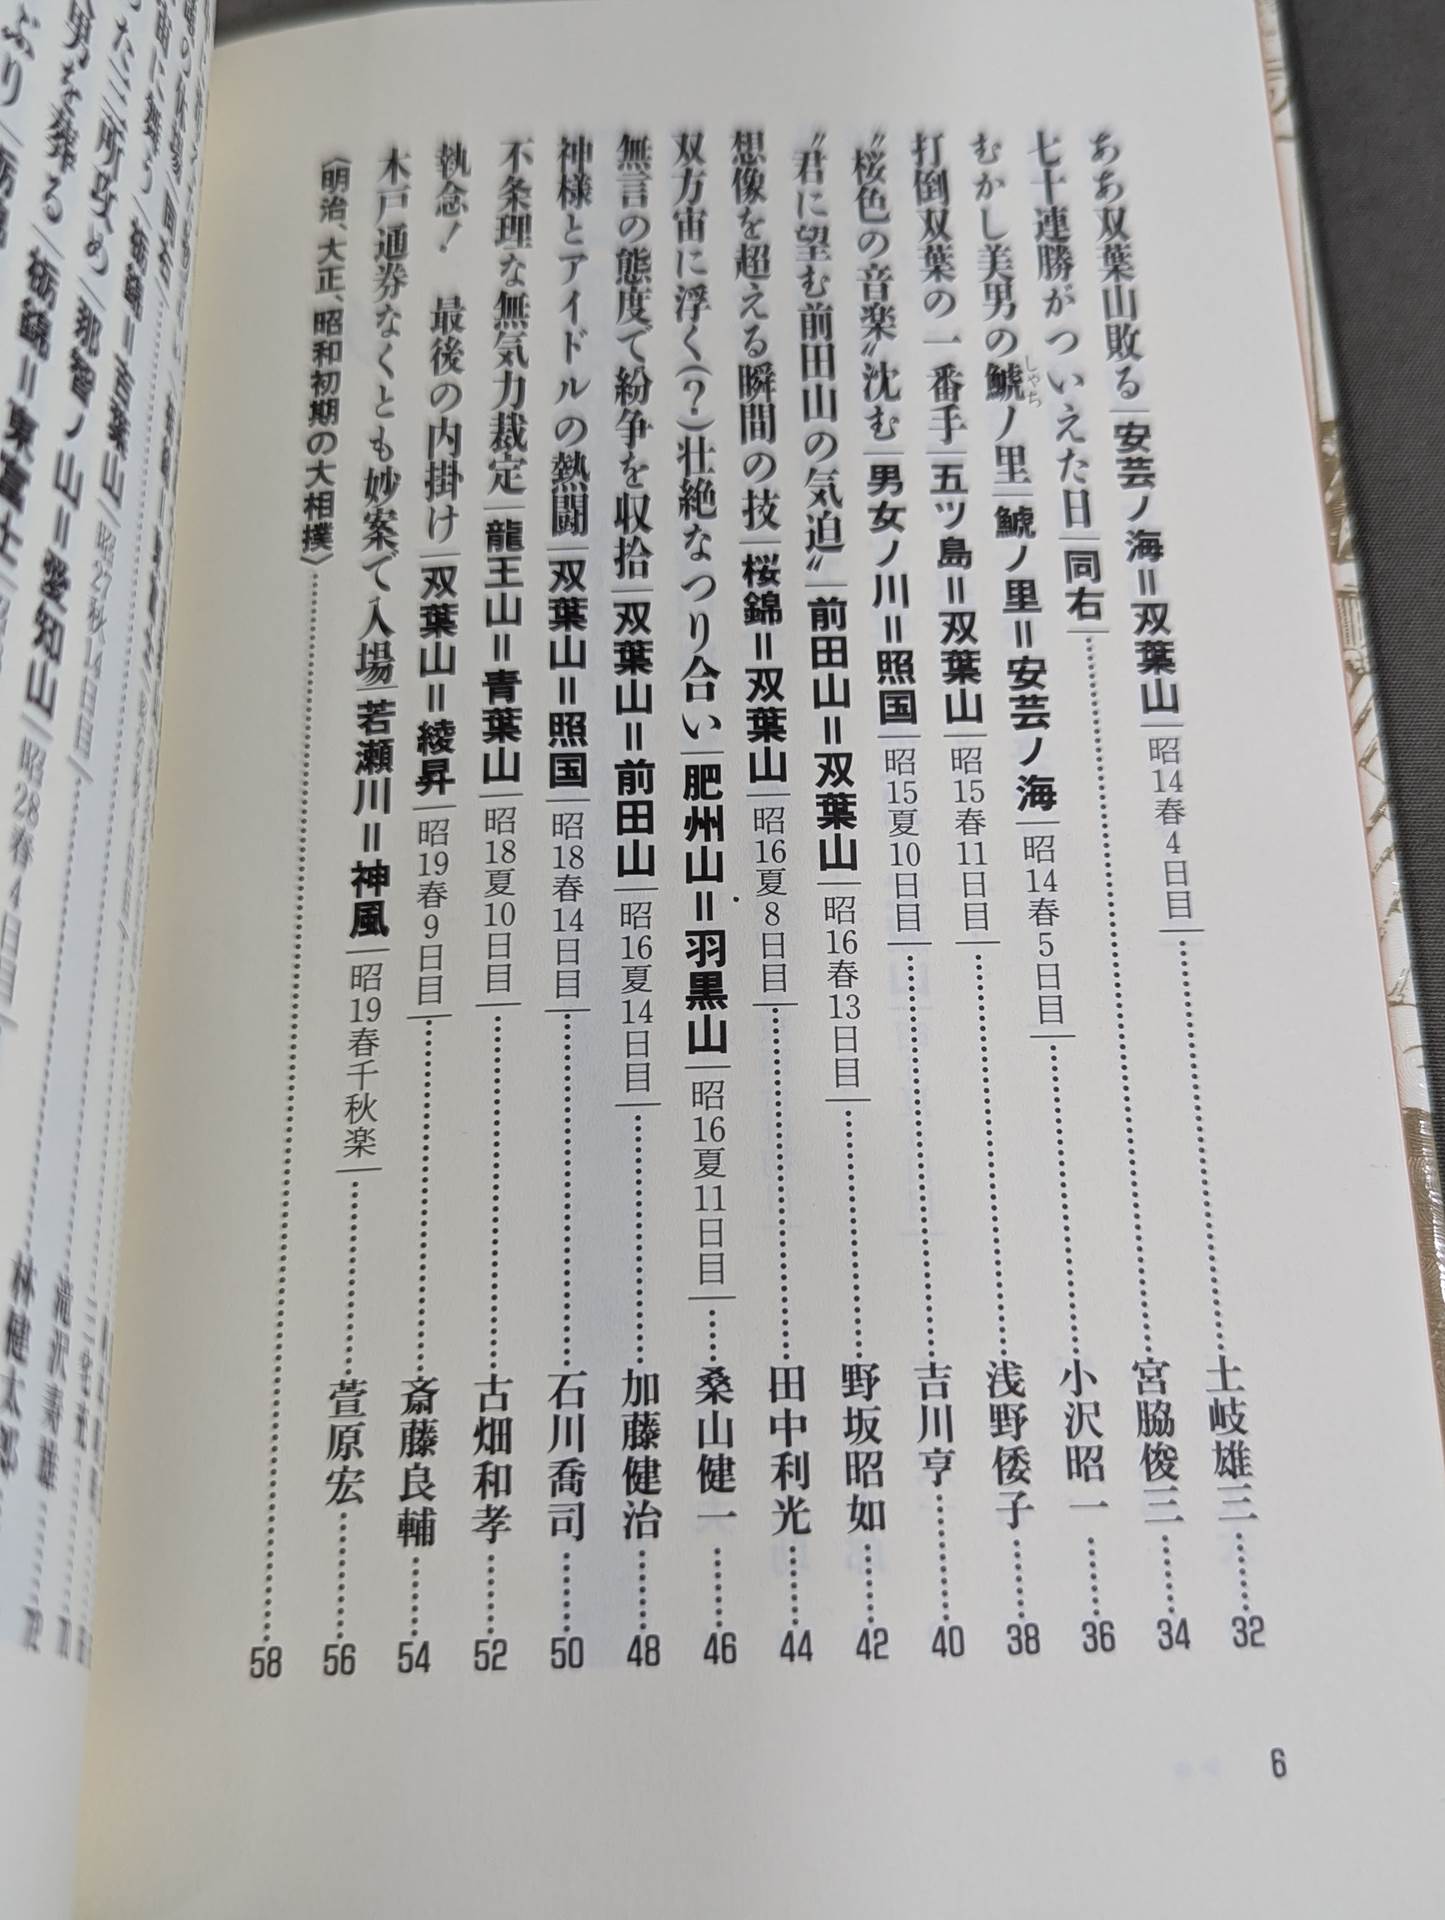 ああ双葉山敗る｜安芸ノ海＝双葉山｜昭14春4日目｜……土岐雄三……32
七十連勝がついえた日｜同右｜……宮脇俊三……34
むかし美男の鯱ノ里｜鯱ノ里＝安芸ノ海｜昭14春5日目｜……小沢昭一……36
しゃち
打倒双葉の一番手｜五ツ島＝双葉山｜昭15春11日目｜……浅野倭子……38
〝桜色の音楽〟沈む｜男女ノ川＝照国｜昭15夏10日目｜……吉川亨……40
〝君に望む前田山の気迫〟｜前田山＝双葉山｜昭16春13日目｜……野坂昭如……42
想像を超える瞬間の技｜桜錦＝双葉山｜昭16夏8日目｜……田中利光……44
双方宙に浮く(？)壮絶なつり合い｜肥州山＝羽黒山｜昭16夏11日目｜……桑山健一……46
無言の態度で紛争を収拾｜双葉山＝前田山｜昭16夏14日目｜……加藤健治……48
神様とアイドルの熱闘｜双葉山＝照国｜昭18春14日目｜……石川喬司……50
不条理な無気力裁定｜龍王山＝青葉山｜昭18夏10日目｜……古畑和孝……52
執念！　最後の内掛け｜双葉山＝綾昇｜昭19春9日目｜……斎藤良輔……54
木戸通券なくとも妙案で入場｜若瀬川＝神風｜昭19春千秋楽｜……萱原宏……56
〈明治、大正、昭和初期の大相撲〉……58
6
栃錦＝吉葉山｜昭27秋14日目｜
た三所攻め｜那智ノ山＝愛知山｜……滝沢寿雄……71
栃錦＝東富士｜昭28春4日目｜……林健太郎……72